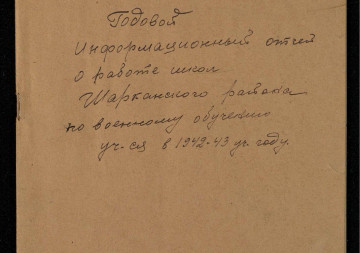 Годовой
Информационный отчет
о работе школ
Шарканского района
по военному обучению
уч-ся в 1942-43 уч. году.